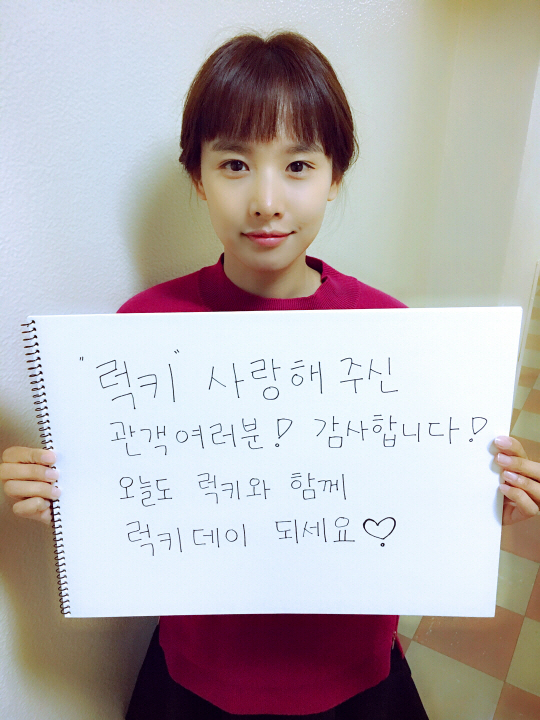 "럭키" 사랑해 주신
관객여러분! 감사합니다!
오늘도 럭키와 함께
럭키데이 되세요♡